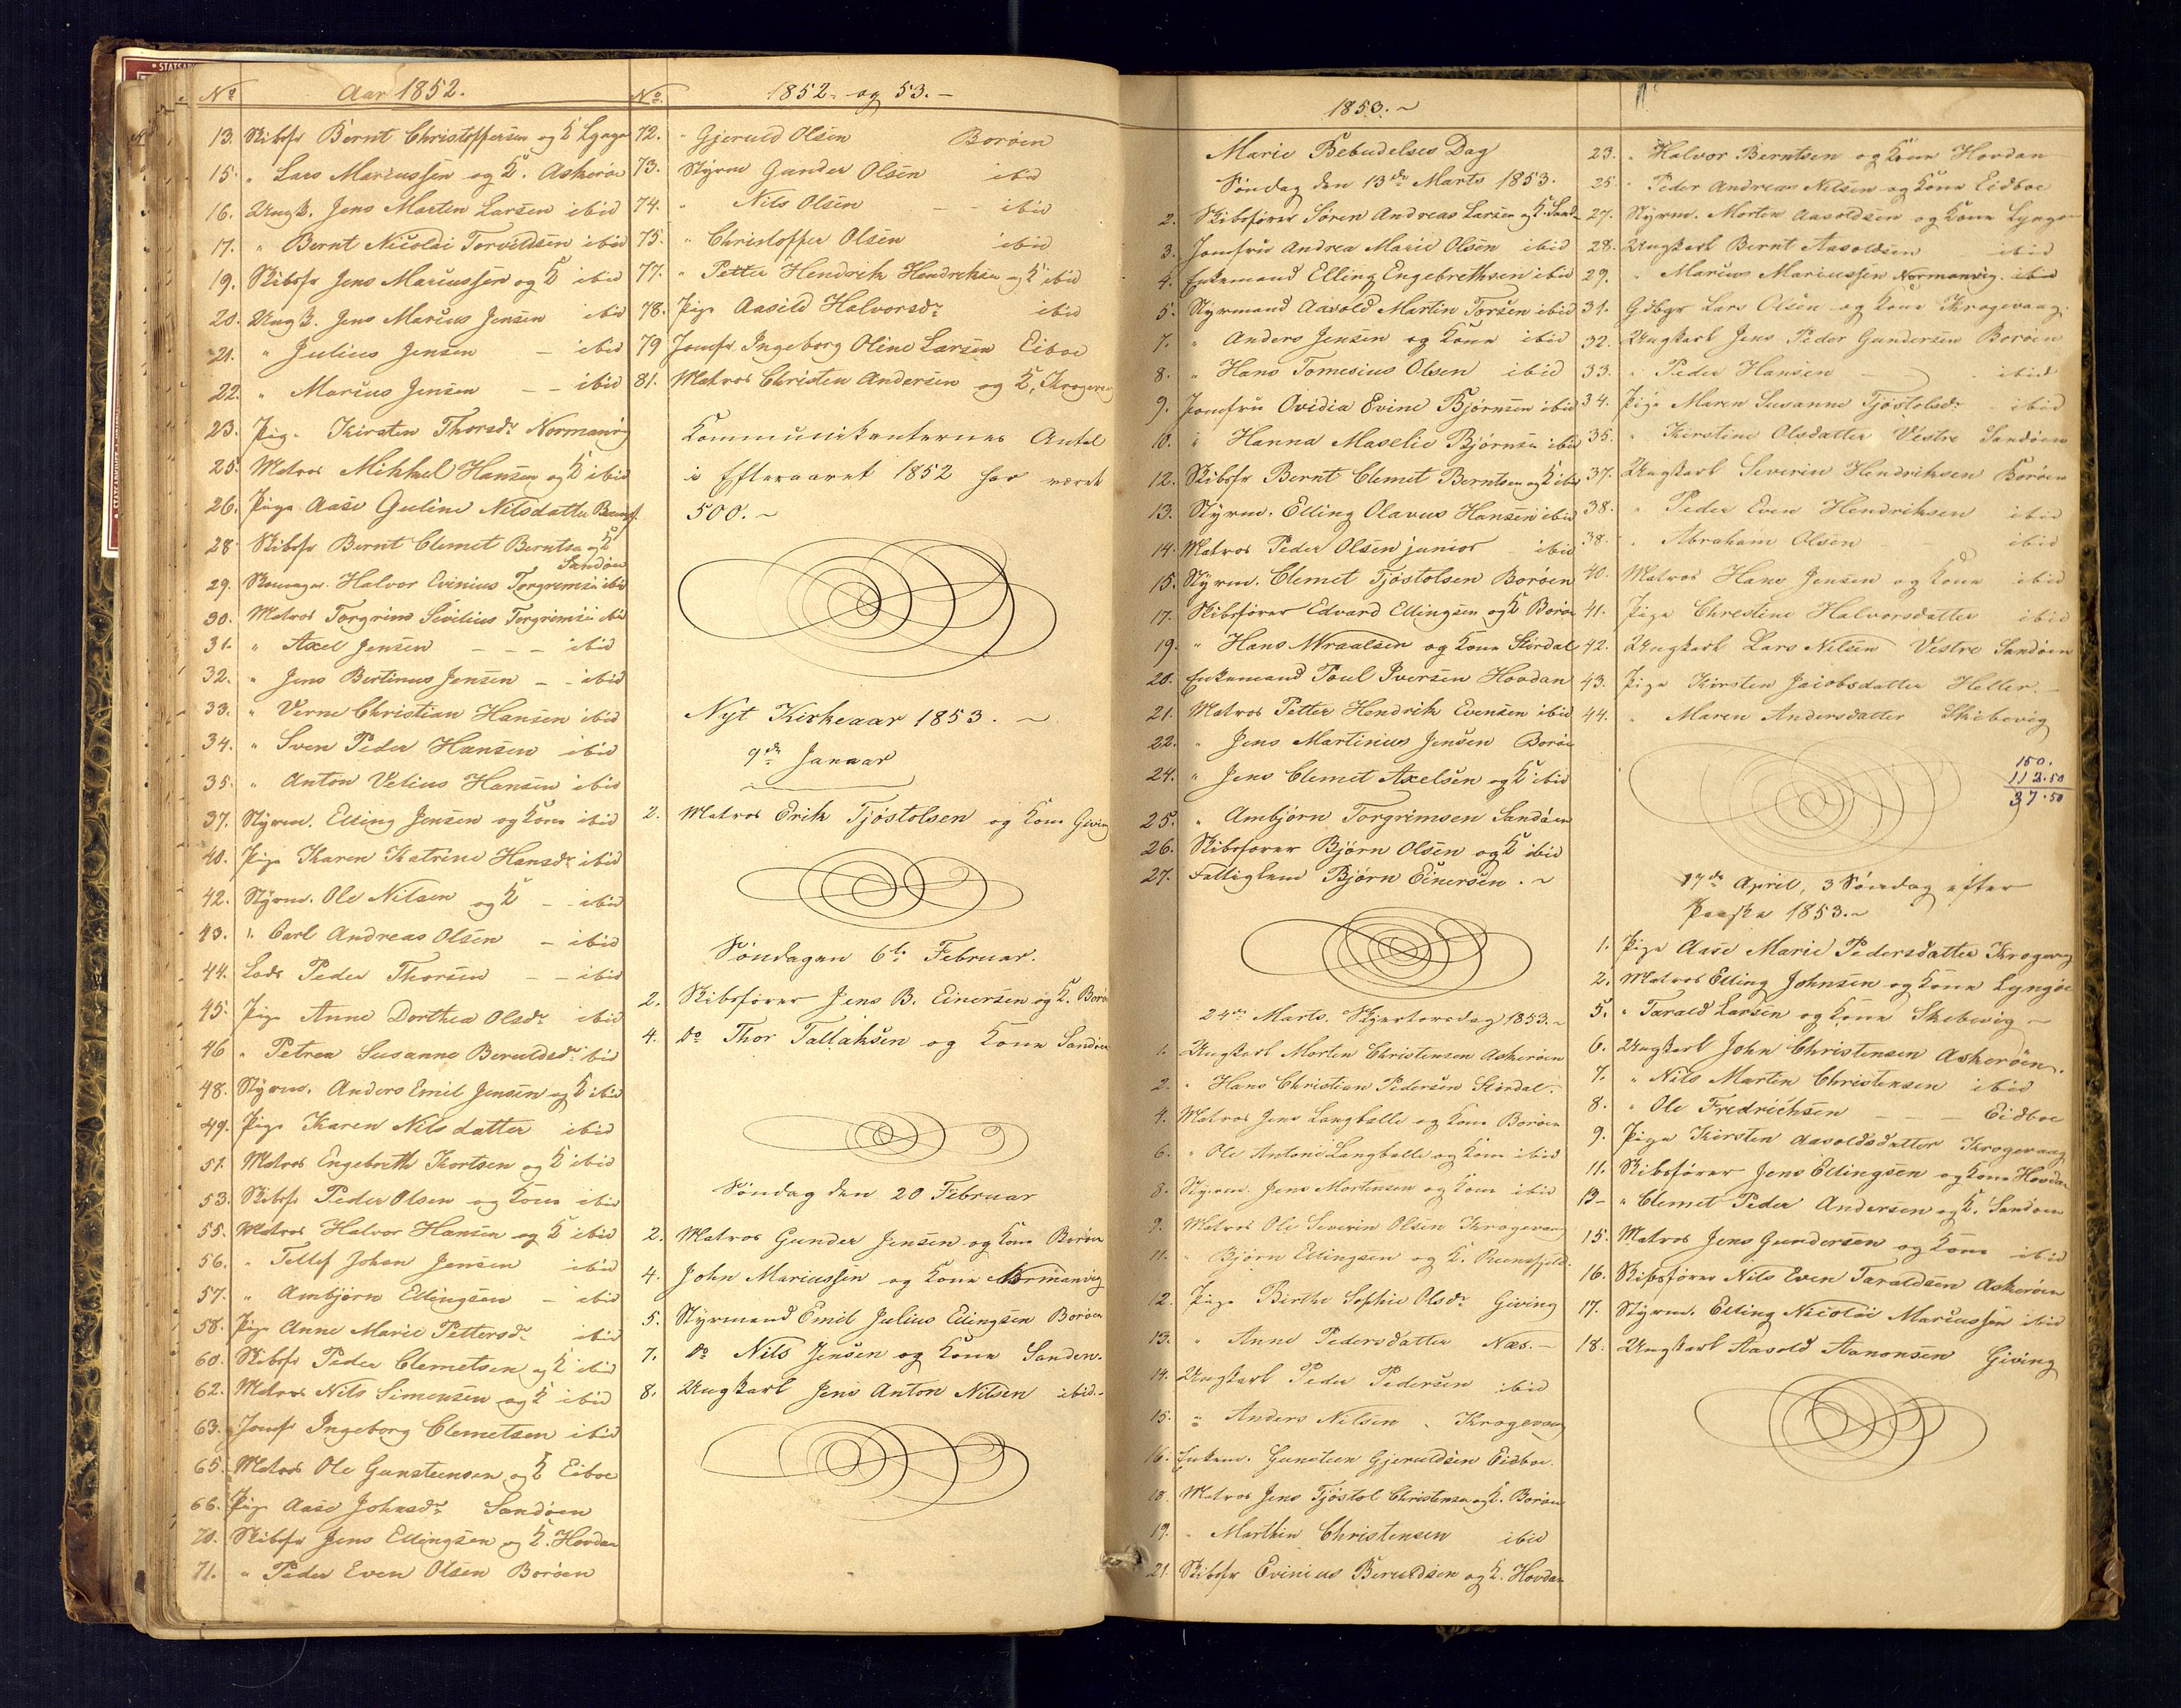 No Aar 1852.
13. Skibsfr Bernt Christoffersen og K Lyngø
15. " Lars Mariussen og K. Askerøe
16. Ungk. Jens Marten Larsen ibid
17. " Bernt Nicolai Torvildsen ibid
19. Skibsfr Jens Mariussen og K ibid
20. Ungk. Jens Marius Jensen ibid
21. " Julius Jensen – ibid
22. " Marius Jensen – – ibid
23. Pig. Kirsten Thorsdr Normanvig
25. Matros Mikkel Hansen og K ibid
26. Pige Aase Guline Nilsdatter
28 Skibsfr Bernt Clemet Berntsen og K
Sandøen
29. Halvor Evinius Torgrimsen ibid
30. Matros Torgrim Sivilius Torgrimsen ibid
31. " Axel Jensen – – – ibid
32. " Jens Bertinus Jensen – – ibid
33. " Verne Christian Hansen ibid
34. " Sven Peder Hansen ibid
35. " Anton Velius Hansen ibid
37. Styrm. Elling Jensen og Kone ibid
40. Pige Karen Katrine Hansdr ibid
42. Styrm. Ole Nilsen og K – – ibid
43. " Carl Andreas Olsen – ibid
44. Lods Peder Thorsen – – ibid
45. Pige Anne Dorthea Olsdr ibid
46 " Petrea Susanne Beruldsdr ibid
48. Styrm. Anders Emil Jensen og K ibid
49. Pige Karen Nilsdatter ibid
51. Matros Engebreth Kortsen og K ibid
53. Skibsfr Peder Olsen og Kone ibid
55. Matros Halvor Hansen og K ibid
56. " Tellef Johan Jensen ibid
57. " Ambjørn Ellingsen – ibid
58. Pige Anne Marie Pettersdr ibid
60. Skibsfr Peder Clemetsen og K ibid
62. Matros Nils Simensen og K ibid
63. Jomfr Ingeborg Clemetsen ibid
65. Matros Ole Gunsteensen og K Eiboe
66. Pige Aase Johnsdr Sandøen
70. Skibsfr Jens Ellingsen og K. Hovdan
71. " Peder Even Olsen Borøen
No. 1852. og 53. –
72. " Gjeruld Olsen Borøen
73. Styrm Gunder Olsen ibid
74. " Nils Olsen – – ibid
75. " Christoffer Olsen ibid
77. " Petter Hendrik Hendriksen og K ibid
78. Pige Aasild Halvorsdr ibid
79 Jomfr. Ingeborg Oline Larsen Eiboe
81. Matros Christen Andersen og K, Krogevaag
Kommunikanternes Antal
i Efteraaret 1852 har været
500. ~
Nyt Kirkeaar 1853. ~
9de Januar
2. Matros Erik Tjøstolsen og Kone Giving
Søndagen 6te Februar.
2. Skibsfører Jens B. Einersen og K. Borøen
4. Do Thor Tallaksen og Kone Sandøen
Søndag den 20 Februar
2. Matros Gunder Jensen og Kone Borøen
4. John Mariussen og Kone Normanvig
5. Styrmand Emil Julius Ellingsen Borøen
7. Do Nils Jensen og Kone Sandøen.
8. Ungkarl Jens Anton Nilsen ibid.–
1853. ~
Marie Bebudelses Dag
Søndag den 13de Marts 1853.
2. Skibsfører Søren Andreas Larsen og K. Sand
3. Jomfru Andrea Marie Olsen ibid
4. Enkemand Elling Engebrethsen ibid
5. Styrmand Aavold Martin Torsen ibid
7. " Anders Jensen og Kone ibid
8. " Hans Tomesius Olsen ibid
9. Jomfru Ovidia Evine Bjørnsen ibid
10. " Hanna Maselie Bjørnsen ibid
12. Skibsfr Bernt Clemet Berntsen og K ibid
13. Styrm. Elling Olavus Hansen ibid
14. Matros Peder Olsen junior – ibid
15. Styrm. Clemet Tjøstolsen Borøen
17. Skibsfører Edvard Ellingsen og K Borøe
19. " Hans Wraalsen og Kone Størdal
20. Enkemand Poul Iversen Hovdan
21. Matros Petter Hendrik Evensen ibid
22. " Jens Martinius Jensen Borøe
24. " Jens Clemet Axelsen og K ibid
25. " Ambjørn Torgrimsen Sandøen
26. Skibsfører Bjørn Olsen og K ibid
27. Fattiglem Bjørn Einersen. ~
24de Marts. Skjertorsdag 1853. ~
1. Ungkarl Morten Christensen Askerøen
2. " Hans Christian Pedersen Størdal.–
4. Matros Jens Langballe og Kone Borøen
6. " Ole Antoni Langballe og Kone ibid
8. Styrm. Jens Mortensen og Kone ibid
9. Matros Ole Severin Olsen Krogevaag
11. " Bjørn Ellingsen og K. Reensfjeld.
12. Pige Birthe Sophie Olsdr Giving
13. " Anne Pedersdatter Næs. –
14. Ungkarl Peder Pedersen ibid
15. " Anders Nilsen . Krogevaag
16. Enkem. Gunsteen Gjeruldsen Eidboe.
18. Matros Jens Tjøstol Christensen og K. Borøen
19. " Marthin Christensen ibid
21. Skibsfr Evinius Beruldsen og K. Hovdan
23. " Halvor Berntsen og Kone Hovdan
25. " Peder Andreas Nilsen og Kone Eidboe
27. Styrm. Morten Aasoldsen og Kone Lyngøe
28. Ungkarl Bernt Aasoldsen ibid
29. " Marius Mariussen Normanvig. ibid
31. Gdbgr Lars Olsen og Kone Krogevaag.
32. Ungkarl Jens Peder Gundersen Borøen
33. " Peder Hansen – – ibid
34. Pige Maren Susanne Tjøstolsdr – ibid
35. " Kirstine Olsdatter Vestre Sandøen
37. Ungkarl Severin Hendriksen Borøen
38. " Peder Even Hendriksen ibid
38. " Abraham Olsen – ibid
40. Matros Hans Jensen og Kone ibid
41. Pige Chrestine Halvorsdatter ibid
42. Ungkarl Lars Nilsen Vestre Sandøen
43. Pige Kirsten Jacobsdatter Helter. –
44. " Maren Andersdatter Skibevig
150.
112.50
37.50
17de April, 3 Søndag efter
Paaske 1853. ~
1. Pige Aase Marie Pedersdatter Krogevig
2. Matros Elling Johnsen og Kone Lyngøe
5. " Tarald Larsen og Kone Skibevig –
6. Ungkarl John Christensen Askerøen.
7. " Nils Martin Christensen ibid
8. " Ole Fredrichsen – – Eidboe
9. Pige Kirsten Aasoldsdatter Krogevaag
11. Skibsfører Jens Ellingsen og Kone Hovdan
13 – " Clemet Peder Andersen og K. Sandøen
15. Matros Jens Gundersen og Kone ibid
16. Skibsfører Nils Even Taraldsen Askerøen
17. Styrm. Elling Nicolai Mariussen ibid
18. Ungkarl Aasold Aanonsen Giving